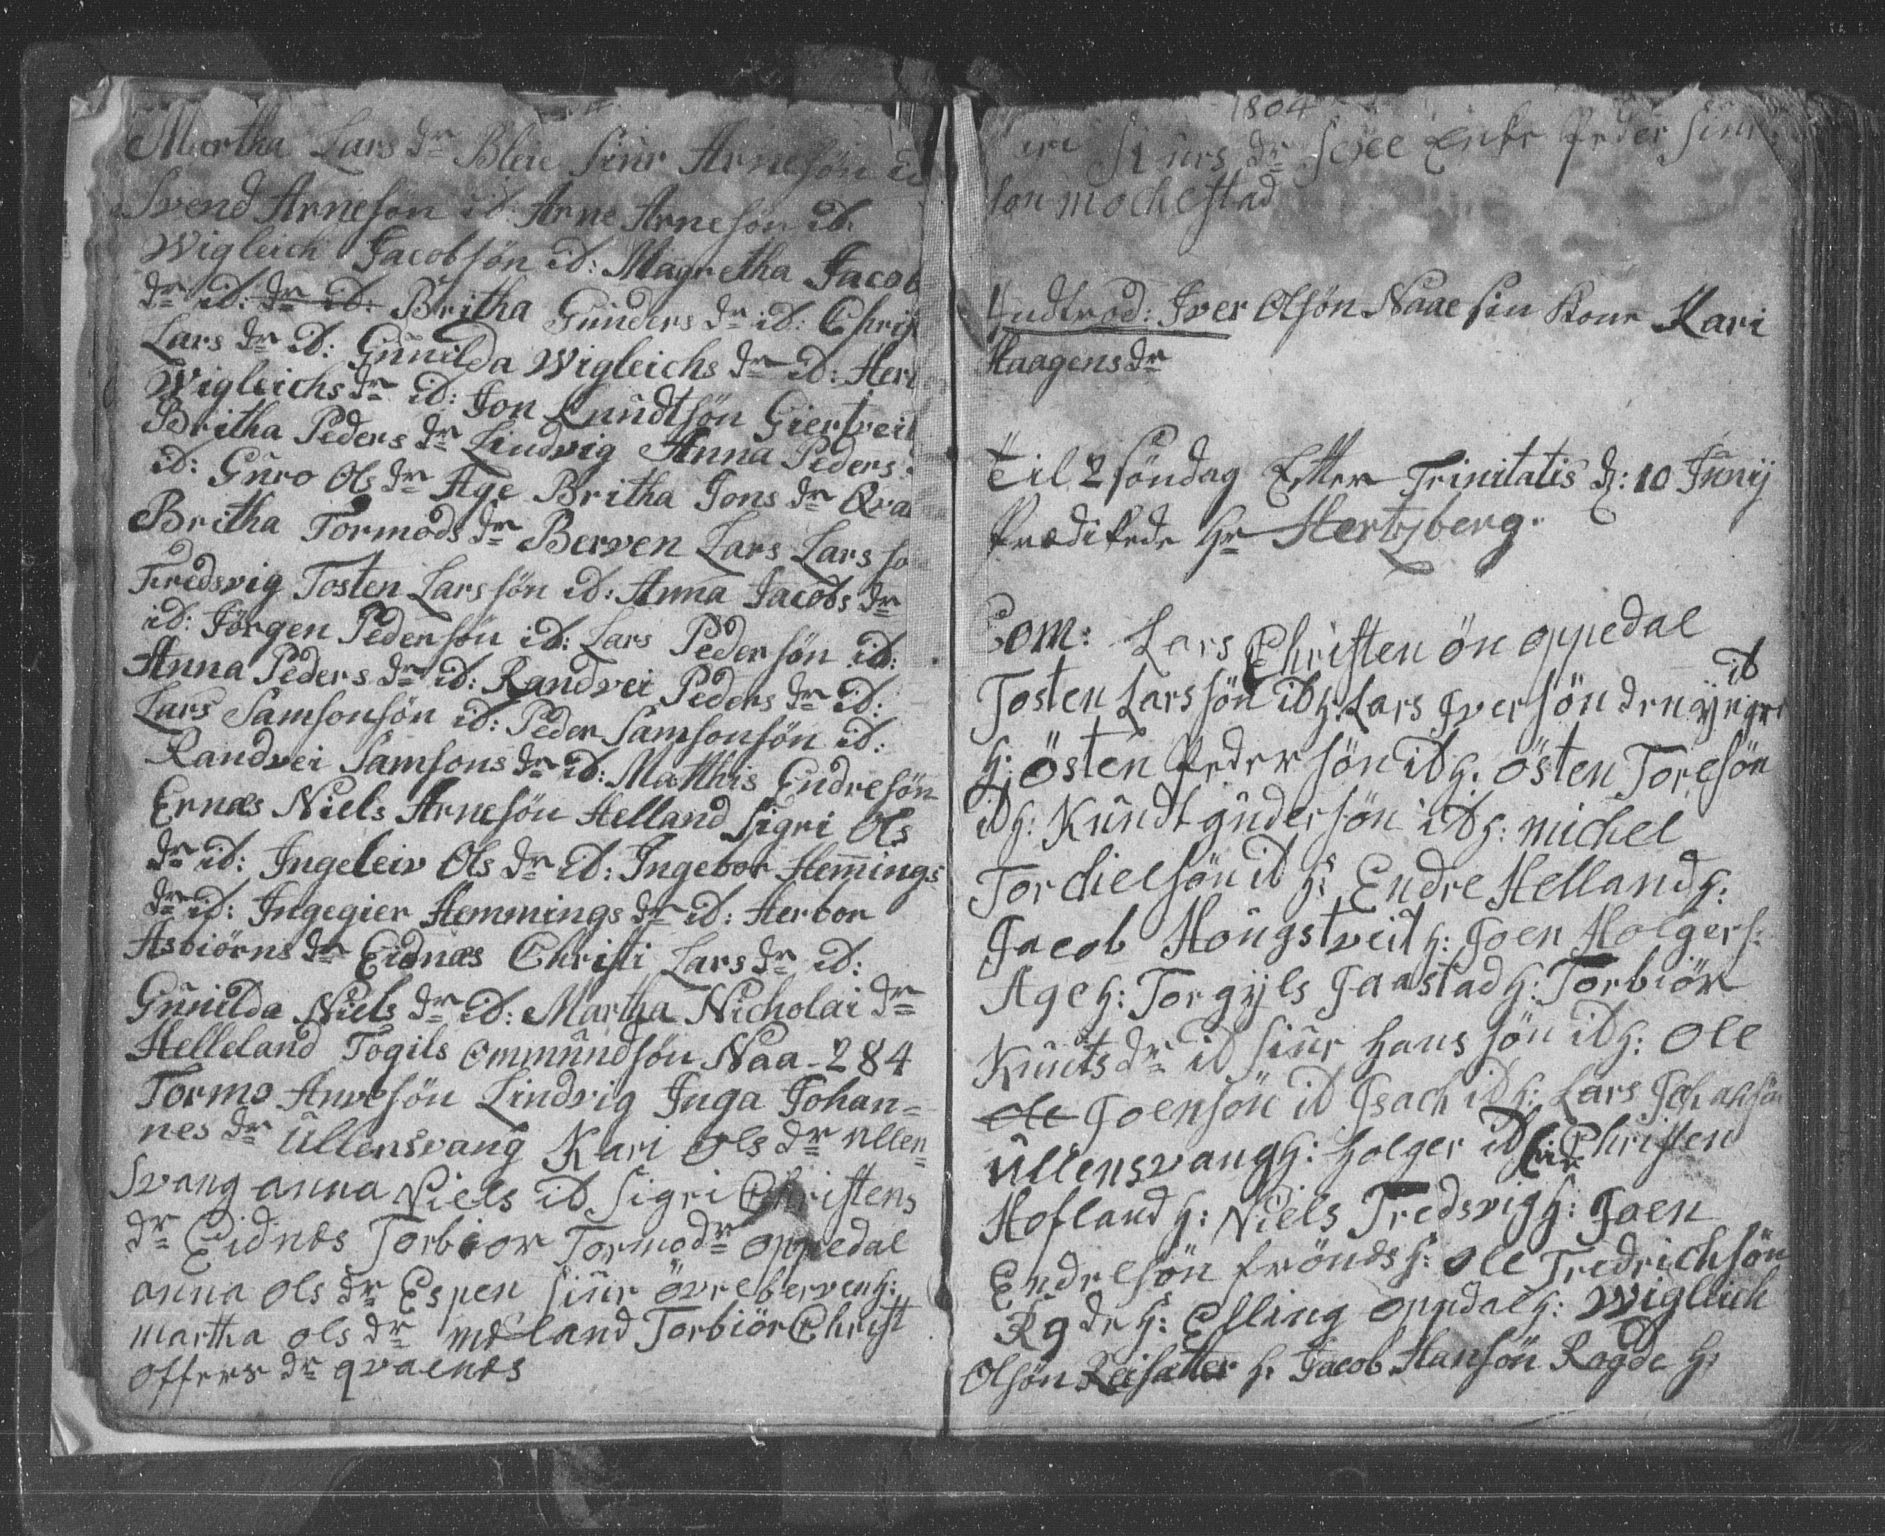 Martha Lars dr Bleie Siur Arnesön id
Svend Arnesön id: Arne Arnesön id:
Wigleich Jacobsön id: Magretha Jacob
dr id: dr id: Britha Gunders dr id: Chri
Lars dr id: Gunilda Wigleichs dr id: Her
Wigleichs dr id: Jon Knudtsön Giertveit
Britha Peders dr Lindvig Anna Peders
id: Guro Ols dr Age Britha Jons dr Qva
Britha Tormods dr Berven Lars Lars sö
Fredsvig Tosten Lars sön id: Anna Jacobs dr
id: Jörgen Pedersön id: Lars Pedersön id:
Anna Peders dr id: Randvei Peders dr id:
Lars Samsonsön id: Peder Samsonsön id:
Randvei Samsons dr id: Mathis Endresön
Ernæs Niels Arnesön Helland Sigri Ols
dr id: Ingeleiv Ols dr id: Ingebor Hemings
dr id: Ingegier Hemmings dr id: Herbor
Asbiörns dr Eidnæs Christi Lars dr id:
Gunilda Niels dr id: Martha Nicholai dr
Helleland Togils Ommundsön Naa - 284
Tormo Anvesön Lindvig Inga Johan=
nes dr Ullensvang Kari Ols dr Ullen=
Svang anna Niels id Sigri Christens
dr Eidnes Torbior Tormo dr oppedal
anna Ols dr Espen Siur övre berven h:
martha ols dr meland Torbiör Christ
offers dr qvalenes
1804
Siurs dr Sexe Enke Peder Siur
son mochestad
Indtrod: Iver Olsön Naae sin Kone Kari
Haagens dr
Til 2 söndag Efter Trinitatis d: 10 Junij
Prædikede Hr Hertzberg.
Com: Lars Christen ön oppedal
id
Tosten Lars sön id h: Lars Iver sön den yngre
h: östen Peder sön id h. östen Toresön
id h: Knudt gudersön id h: michel
Torchielsön id h: Endre Helland h:
Jacob Hougstveit h: Joen Holger h:
Age h: Torgyls Jaastad h: Torbiör
Knuts dr id Siur hans sön id h: Ole
Ole Joensön id Isach id h: Lars Johansön
Ullensvang h: holger id h: Christen
Hofland h: Niels Tredsvig h: Joen
Endresön frönæs h: Ole Fredrichsön
Rgde h: Elling oppdal h: Wigleich
Olsön Reisætter h: Jacob Hansön Rogde h: